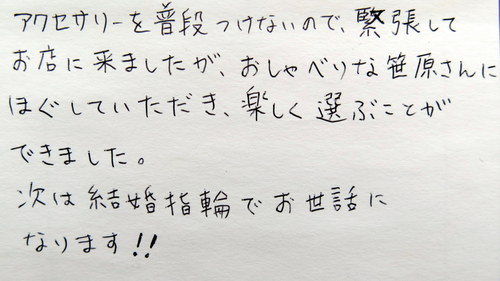 アクセサリーを普段つけないので、緊張して
お店に来ましたが、おしゃべりな笹原さんに
ほぐしていただき、楽しく選ぶことが
できました。
次は結婚指輪でお世話に
なります!!